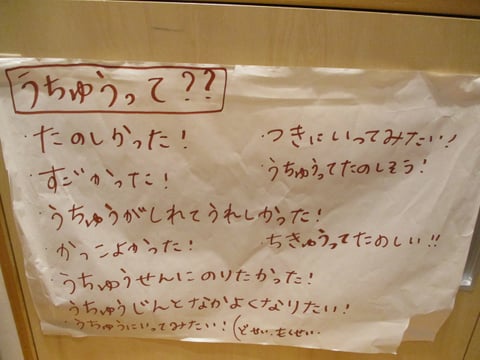 うちゅうって??
・たのしかった!
・すごかった!
・うちゅうがしれてうれしかった!
・かっこよかった!
・うちゅうせんにのりたかった!
・うちゅうじんとなかよくなりたい!
・うちゅうにいってみたい!(どせい、もくせい、
・つきにいってみたい!
・うちゅうってたのしそう!
・ちきゅうってたのしい!!